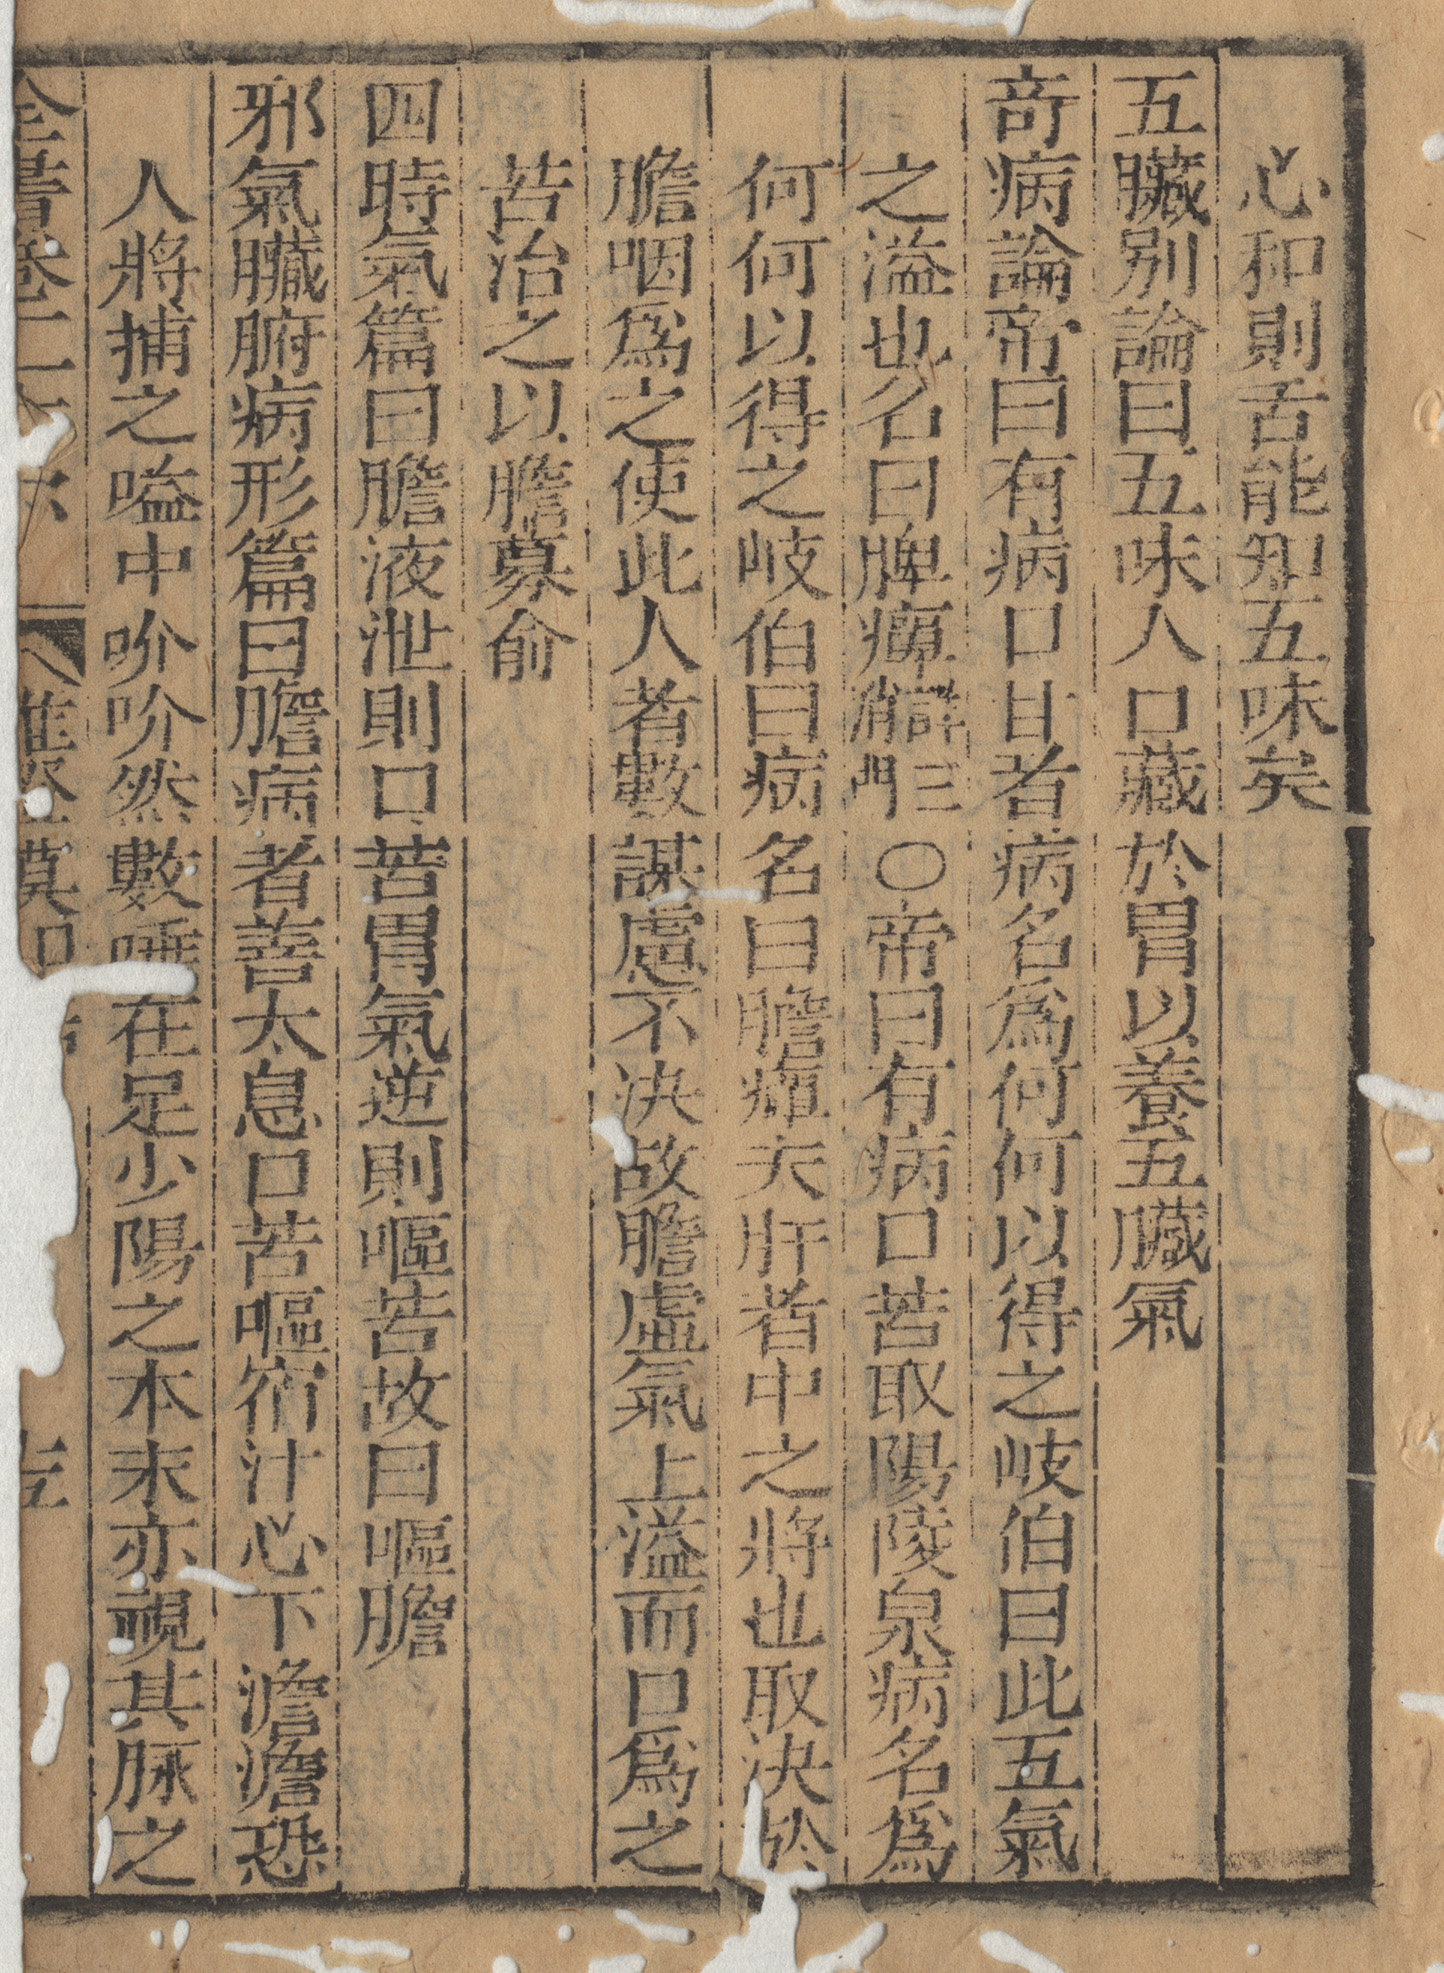 心和則舌能知五味矣
五臟別論曰五味入口藏於胃以養五臟氣
奇病論帝曰有病口甘者病名爲何何以得之岐伯曰此五氣
之溢也名曰脾癉詳三消門〇帝曰有病口苦取陽陵泉病名爲
何何以得之岐伯曰病名曰膽癉夫肝者中之將也取決於
膽咽爲之使此人者數謀慮不決故膽虛氣上溢而口爲之
苦治之以膽募俞
四時氣篇曰膽液泄則口苦胃氣逆則嘔苦故曰嘔膽
邪氣臟腑病形篇曰膽病者善太息口苦嘔宿汁心下澹澹恐
人將捕之嗌中吤吤然數唾在足少陽之本末亦視其脉之
全書卷二十六 雜證謨 口